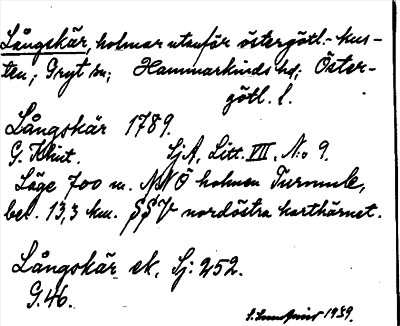 Långskär, holmar utanför östergötl.-kus-
ten; Gryt sn; Hammarkinds hd; Öster-
götl. l.
Långskär 1789.
G. Klint. SjA, Litt. VII, N:o 9.
Läge 700 m. NNÖ holmen Turmule,
bel. 13,3 km. SSV nordöstra karthörnet.
Långskär ek. Sj: 252.
G.46.
1939.